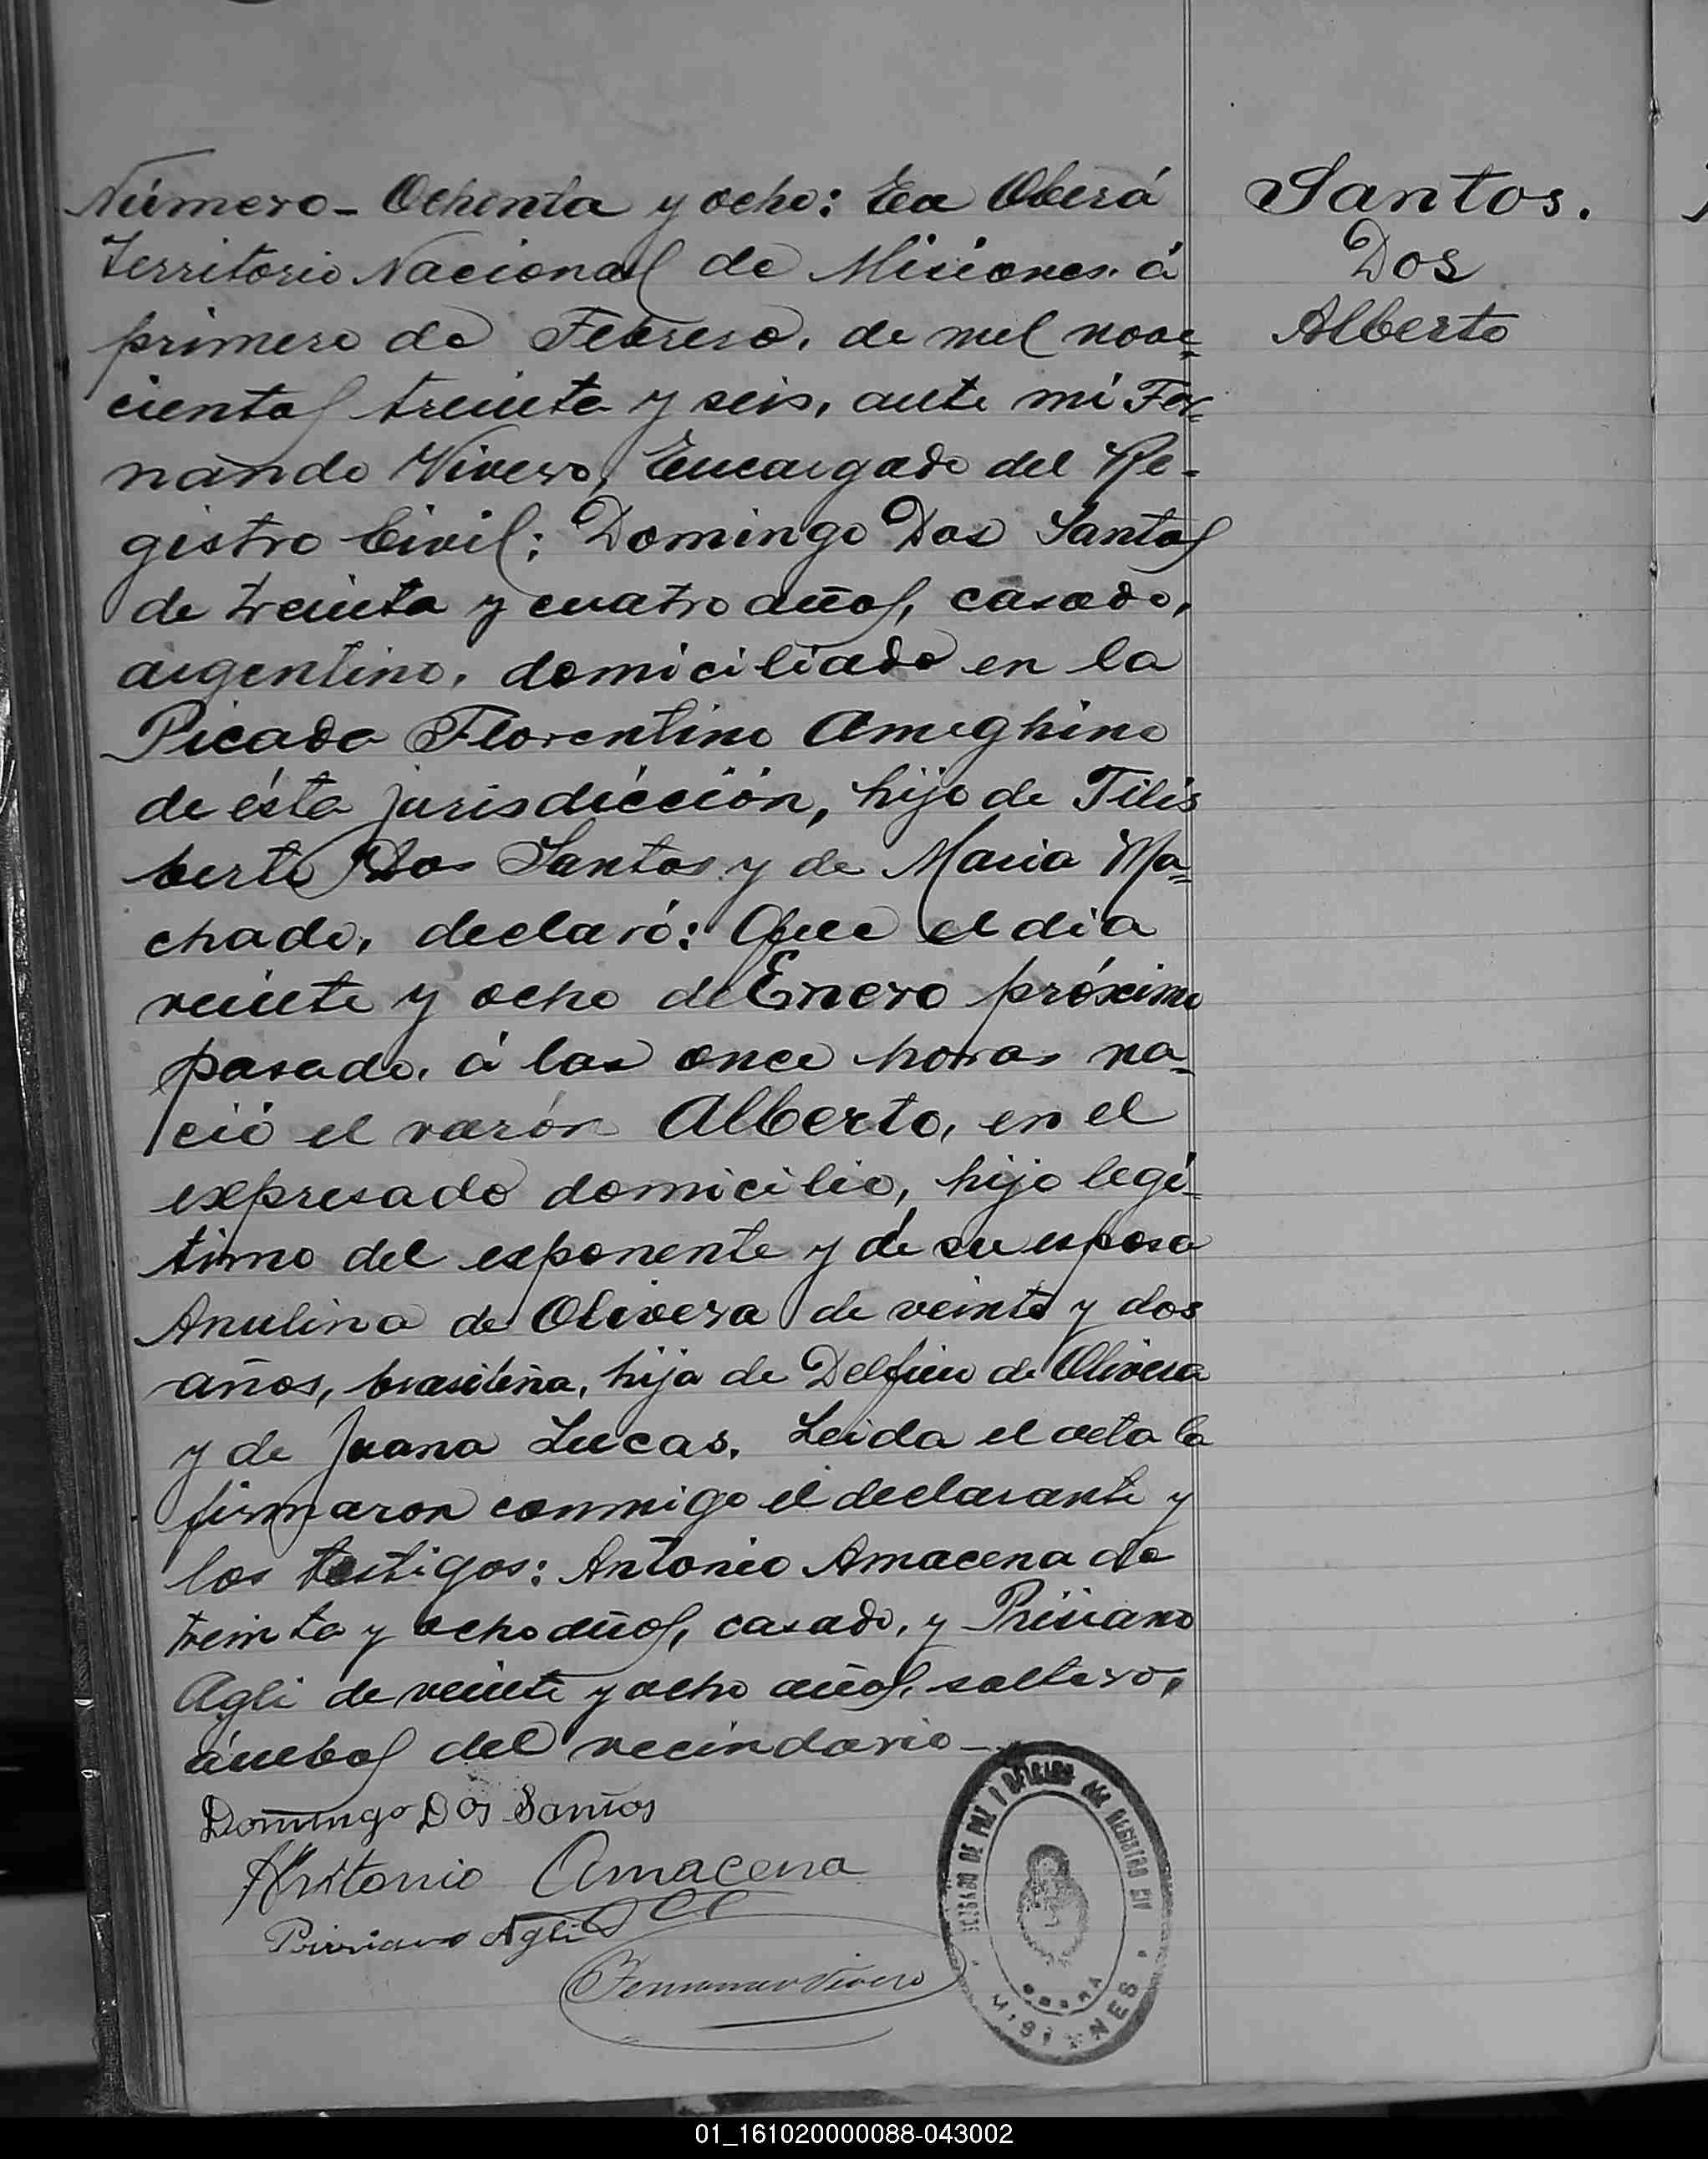 Número - Ochenta y ocho: En Oberá
Territorio Nacional de Misiones. á
primero de Febrero, de mil nove=
cientos treinta y seis, ante mí Fer=
nando Vivero, Encargado del Re-
gistro Civil: Domingo Dos Santos
de treinta y cuatro años, casado,
argentino, domiciliado en la
Picada Florentino Ameghino
de ésta jurisdicción, hijo de Filis
berto Dos Santos y de Maria Ma=
chado, declaró: Que el dia
veinte y ocho de Enero próximo
pasado, á las once horas na=
ció el varón Alberto, en el
expresado domicilio, hijo legí-
timo del exponente y de su esposa
Anulina de Olivera de veinte y dos
años, brasileña, hija de Delfin de Olivera
y de Juana Lucas. Leida el acta la
firmaron conmigo el declarante y
los testigos: Antonio Amacena de
treinta y ocho años, casado, y Prisiano
Agli de veinte y ocho años, soltero,
ámbos del vecindario -
Domingo Dos Santos
Antonio Amacena
Prisiano Agli
Fernando Vivero
JUZGADO DE PAZ Y OFICINA DEL REGISTRO CIVIL
OBERA
MISIONES
Santos.
Dos
Alberto
01_161020000088-043002